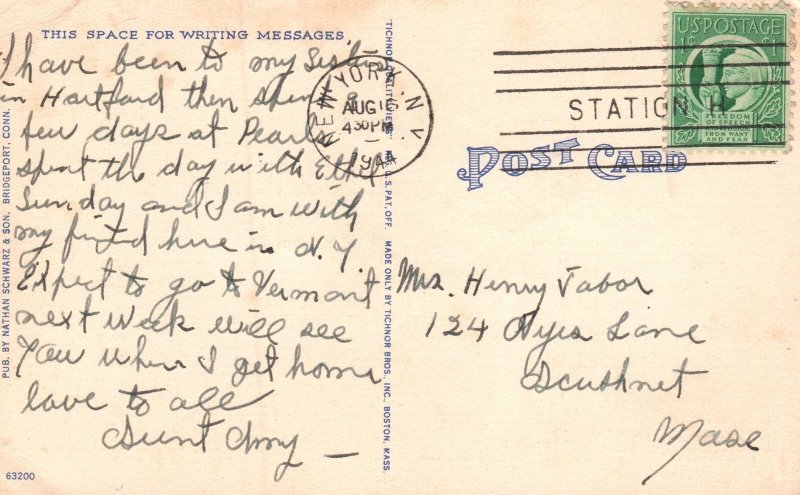 THIS SPACE FOR WRITING MESSAGES
I have been to my sister
in Hartford then spent a
few days at Pearls
spent the day with Ethel
Sunday and I am with
my friend here in N. Y.
Expect to go to Vermont
next week will see
You when I get home
love to all
Aunt Amy
63200
PUB. BY NATHAN SCHWARZ & SON. BRIDGEPORT, CONN.
TICHNOR QUALITY VIEWS REG. U. S. PAT. OFF. MADE ONLY BY TICHNOR BROS., INC., BOSTON, MASS.
NEW YORK, N.Y.
AUG 16
430 PM
1944
STATION H
U.S. POSTAGE
1¢
FREEDOM
OF SPEECH
FROM WANT
AND FEAR
POST CARD
Mrs. Henry Tabor
124 Nyes Lane
Acushnet
Mass